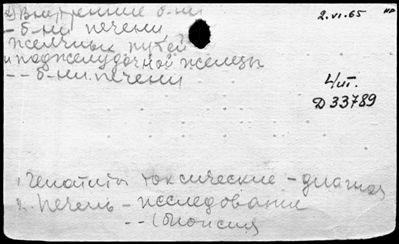 2) Внутренние б-ни
- б-ни печени,
желчных путей
и поджелудочной железы
-- б-ни печени
2.VI.65
НР
4/VI.
Д 33789
1. Гепатиты токсические - диагноз
2. Печень - исследование
-- (биопсия